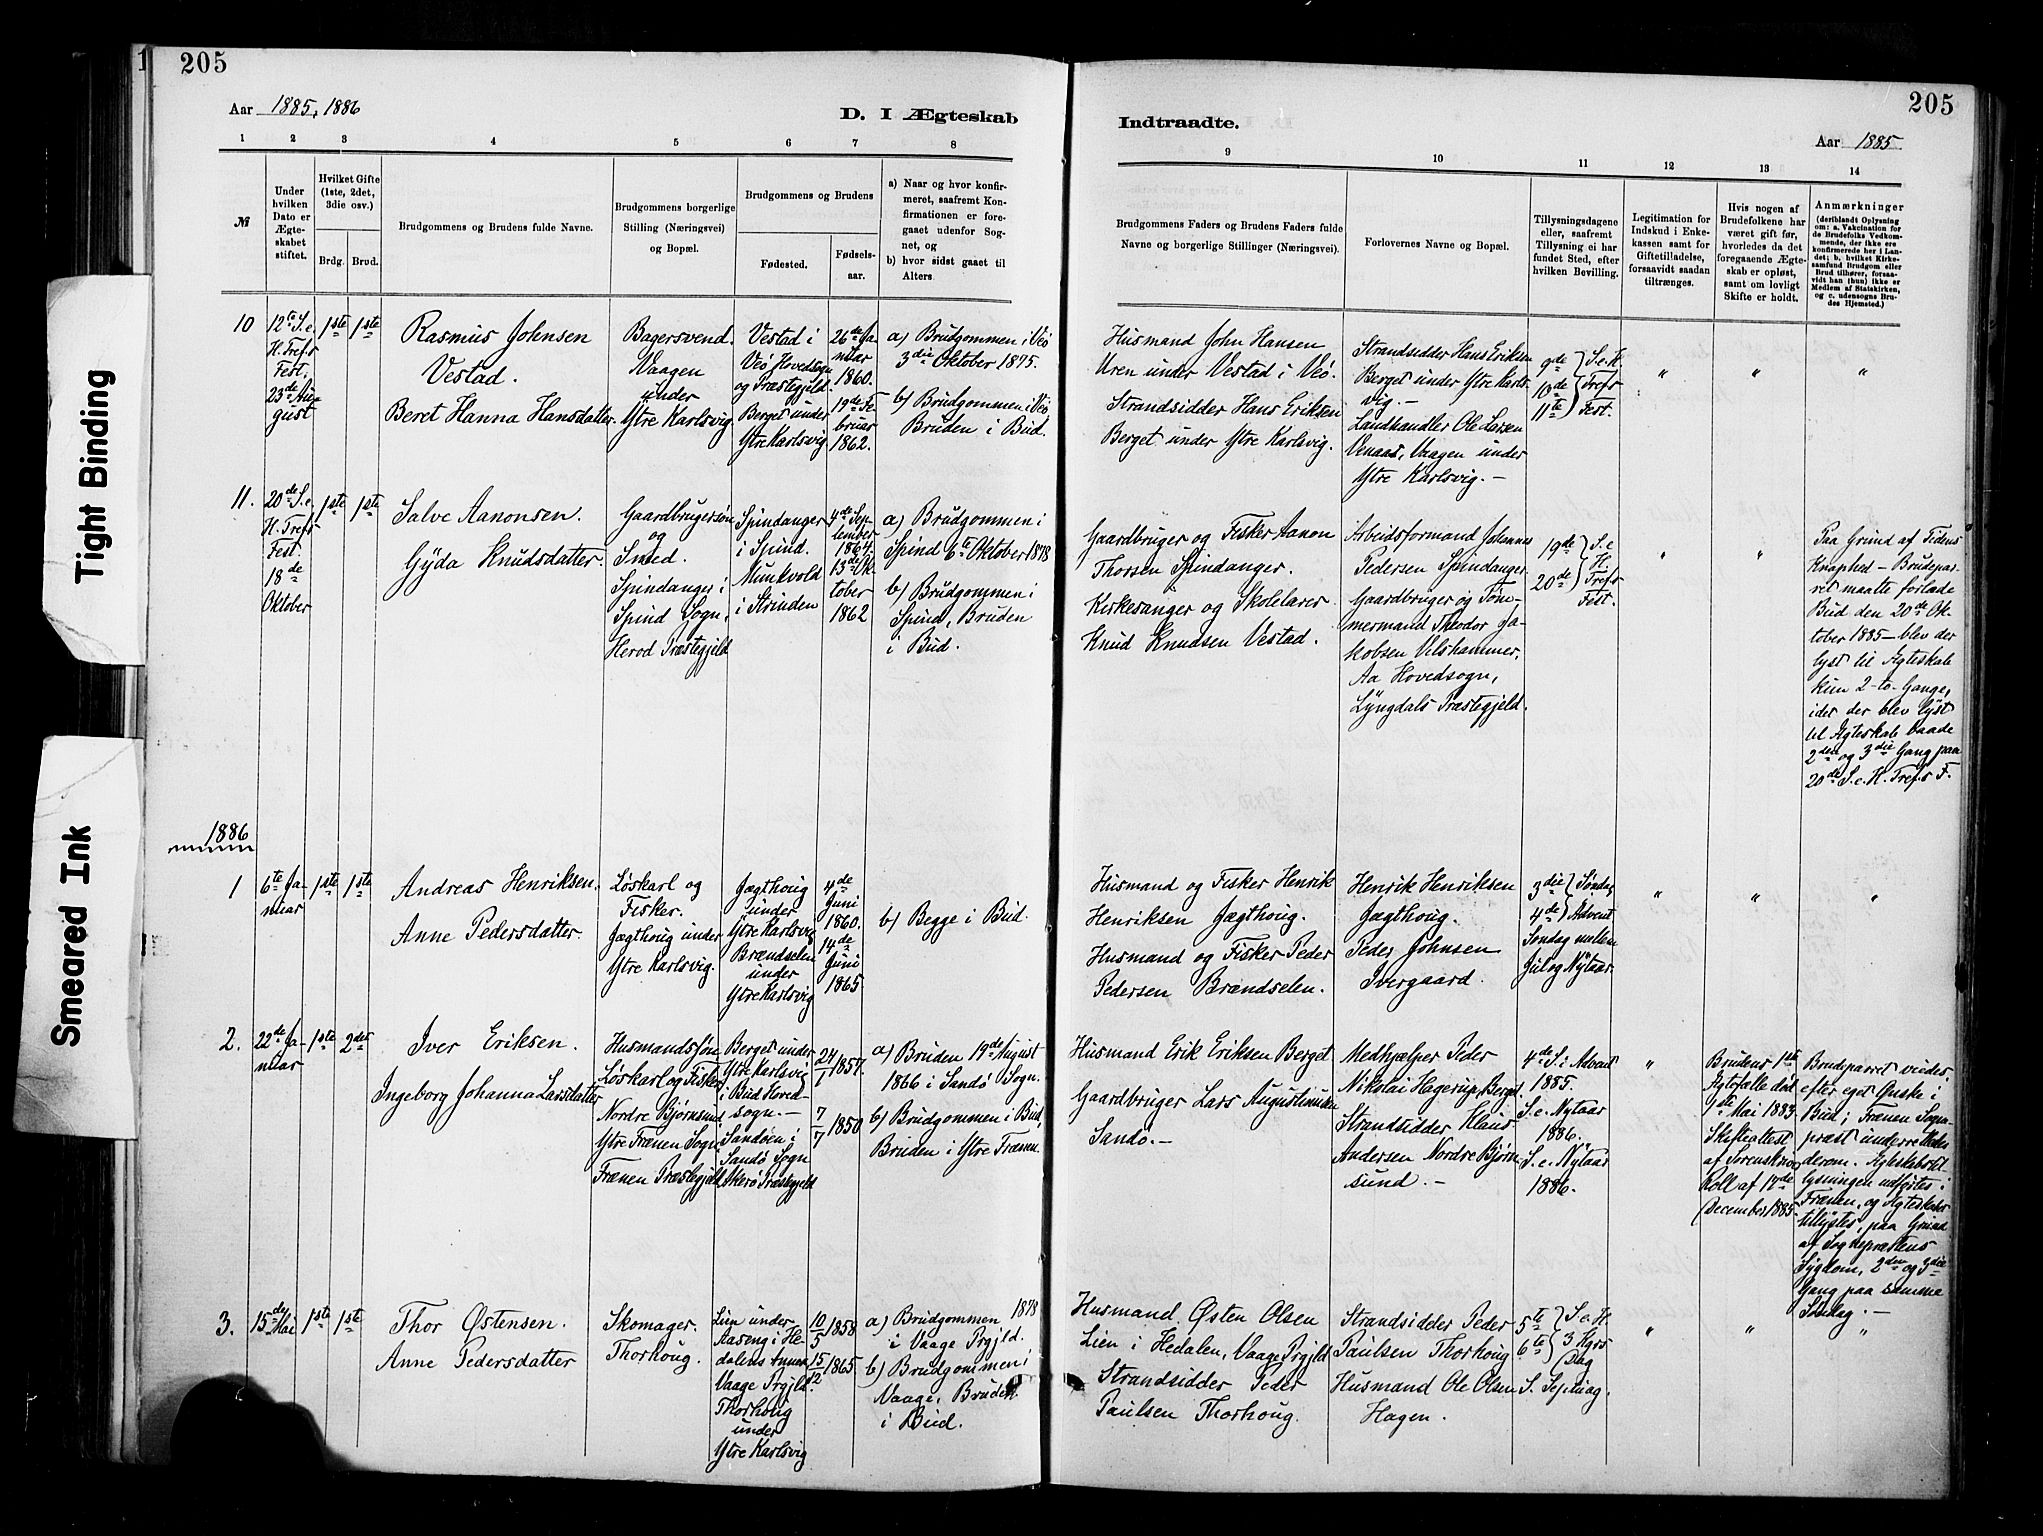 205
Aar 1885, 1886
D. I Ægteskab
1 2 3 4 5 6 7 8
№
Under
hvilken
Dato er
Ægte-
skabet
stiftet.
Hvilket Gifte
(1ste, 2det,
3die osv.)
Brdg. Brud.
Brudgommens og Brudens fulde Navne.
Brudgommens borgerlige
Stilling (Næringsvei)
og Bopæl.
Brudgommens og Brudens
Fødested.
Fødsels-
aar.
a) Naar og hvor konfir-
meret, saafremt Kon-
firmationen er fore-
gaaet udenfor Sog-
net, og
b) hvor sidst gaaet til
Alters.
10
12te S. e.
H. Tref.s
Fest.
23de Au-
gust
1ste 1ste
Rasmus Johnsen
Vestad.
Beret Hanna Hansdatter.
Bagersvend.
Vaagen
under
Ytre Karlsvig.
Vestad i
Veö Hovedsogn
og Præstegjeld
Berget under
Ytre Karlsvig
26de Ja-
nuar
1860.
19de Fe-
bruar
1862.
a) Brudgommen i Veö
3die Oktober 1875.
b) Brudgommen i Veö,
Bruden i Bud.
11.
20de S. e.
H. Tref.s
Fest.
18de
Oktober
1ste 1ste
Salve Aanonsen.
Gyda Knudsdatter.
Gaardbrugersøn
og
Smed.
Spindanger i
Spind Sogn,
Herod Præstegjeld
Spindanger
i Spind.
Munkvold
i Strinden
4de Sep-
tember
1864.
13de Ok-
tober
1862
a) Brudgommen i
Spind 6te Oktober 1878
b) Brudgommen i
Spind, Bruden
i Bud.
1886
1
6te Ja-
nuar
1ste 1ste
Andreas Henriksen.
Anne Pedersdatter.
Løskarl og
Fisker.
Jægthoug under
Ytre Karlsvig.
Jægthoug
under
Ytre Karlsvig
Brændselen
under
Ytre Karlsvig
4de
Juni
1860.
14de
Juni
1865
b) Begge i Bud.
2.
22de Ja-
nuar
1ste 2det
Iver Eriksen.
Ingeborg Johanna Larsdatter
Husmandssøn
Løskarl og Fisker
Nordre Bjørnsund.
Ytre Frænen Sogn
Frænen Præstegjeld
Berget under
Ytre Karlsvig
i Bud Hoved-
sogn.—
Sandøen i
Sandö Sogn
Akerö Præstegjeld
24/1 1857.
7/7 1850
a) Bruden 19de August
1866 i Sandö Sogn.
b) Brudgommen i Bud,
Bruden i Ytre Frænen.
3.
15de Mai
1ste 1ste
Thor Østensen.
Anne Pedersdatter
Skomager.
Thorhoug.
Lien under
Aaseng i He-
dalens Annex
Vaage Prgjld.
Thorhoug
under
Ytre Karlsvig
10/5 1858
15/12 1865
a) Brudgommen 1878
i Vaage Prgjld.
b) Brudgommen i
Vaage, Bruden
i Bud.
205
Indtraadte.
Aar 1885
9 10 11 12 13 14
Brudgommens Faders og Brudens Faders fulde
Navne og borgerlige Stillinger (Næringsvei).
Forlovernes Navne og Bopæl.
Tillysningsdagene
eller, saafremt
Tillysning ei har
fundet Sted, efter
hvilken Bevilling.
Legitimation for
Indskud i Enke-
kassen samt for
Giftetilladelse,
forsaavidt saadan
tiltrænges.
Hvis nogen af
Brudefolkene har
været gift før,
hvorledes da det
foregaaende Ægte-
skab er opløst,
samt om lovligt
Skifte er holdt.
Anmærkninger
(deriblandt Oplysning
om: a. Vakcination for
de Brudefolks Vedkom-
mende, der ikke ere
konfirmerede her i Lan-
det; b. hvilket Kirke-
samfund Brudgom eller
Brud tilhører, forsaa-
vidt han (hun) ikke er
Medlem af Statskirken,
og c. udensogns Bru-
des Hjemsted.)
Husmand John Hansen
Uren under Vestad i Veö.
Strandsidder Hans Eriksen
Berget under Ytre Karlsvig.
Strandsidder Hans Eriksen
Berget under Ytre Karls-
vig.—
Landhandler Ole Larsen
Venaas, Vaagen under
Ytre Karlsvig.—
9de
10de
11te
S. e. H.
Tref.s
Fest.
" " "
Gaardbruger og Fisker Aanon
Thorsen Spindanger.
Kirkesanger og Skolelærer
Knud Knudsen Vestad.
Arbeidsformand Johannes
Pedersen Spindanger
Gaardbruger og Tøm-
mermand Theodor Ja-
kobsen Velshammer,
Aa Hovedsogn,
Lyngdals Præstegjeld.
19de
20de
S. e.
H.
Tref.s
Fest.
" "
Paa Grund af Tidens
Knaphed — Brudepar-
ret maatte forlade
Bud den 20de Ok-
tober 1885 — blev der
lyst til Ægteskab
kun 2-to-Gange,
idet der blev lyst
til Ægteskab baade
2den og 3die Gang paa
20de S. e. H. Tref.s F.
Husmand og Fisker Henrik
Henriksen Jægthoug.
Husmand og Fisker Peder
Pedersen Brændselen.
Henrik Henriksen
Jægthoug.
Peder Johnsen
Ivergaard.
3die
4de
Søndag
Advent
Søndag mellem
Jul og Nytaar.
" " "
Husmand Erik Eriksen Berget
Gaardbruger Lars Augustinusen
Sandö.—
Medhjælper Peder
Nikolai Hagerup Berget.
Strandsidder Klaus
Andersen Nordre Bjørn-
sund.—
4de S. i Advent
1885.
S. e. Nytaar
1886.
S. e. Nytaar
1886.
"
Brudens 1ste
Ægtefælle død
1ste Mai 1883
Skifteattest
af Sorenskriver
Koll af 17de
December 1885.
Brudeparret viedes
efter eget Ønske i
Bud; Frænen Sogne-
præst underrettedes
derom. Ægteskabstil-
lysningen udførtes i
Frænen, og Ægteskabet
tillystes, paa Grund
af Sognepræstens
Sygdom, 2den og 3die
Gang paa samme
Søndag.—
Husmand Østen Olsen
Lien i Hedalen, Vaage Prgjld
Strandsidder Peder
Paulsen Thorhoug.
Strandsidder Peder
Paulsen Thorhoug
Husmand Ole Olsen
Hagen.
5te
6te
S. e. H.
3 Kgrs
Dag
S. Septuag.
" " "
Tight Binding
Smeared Ink